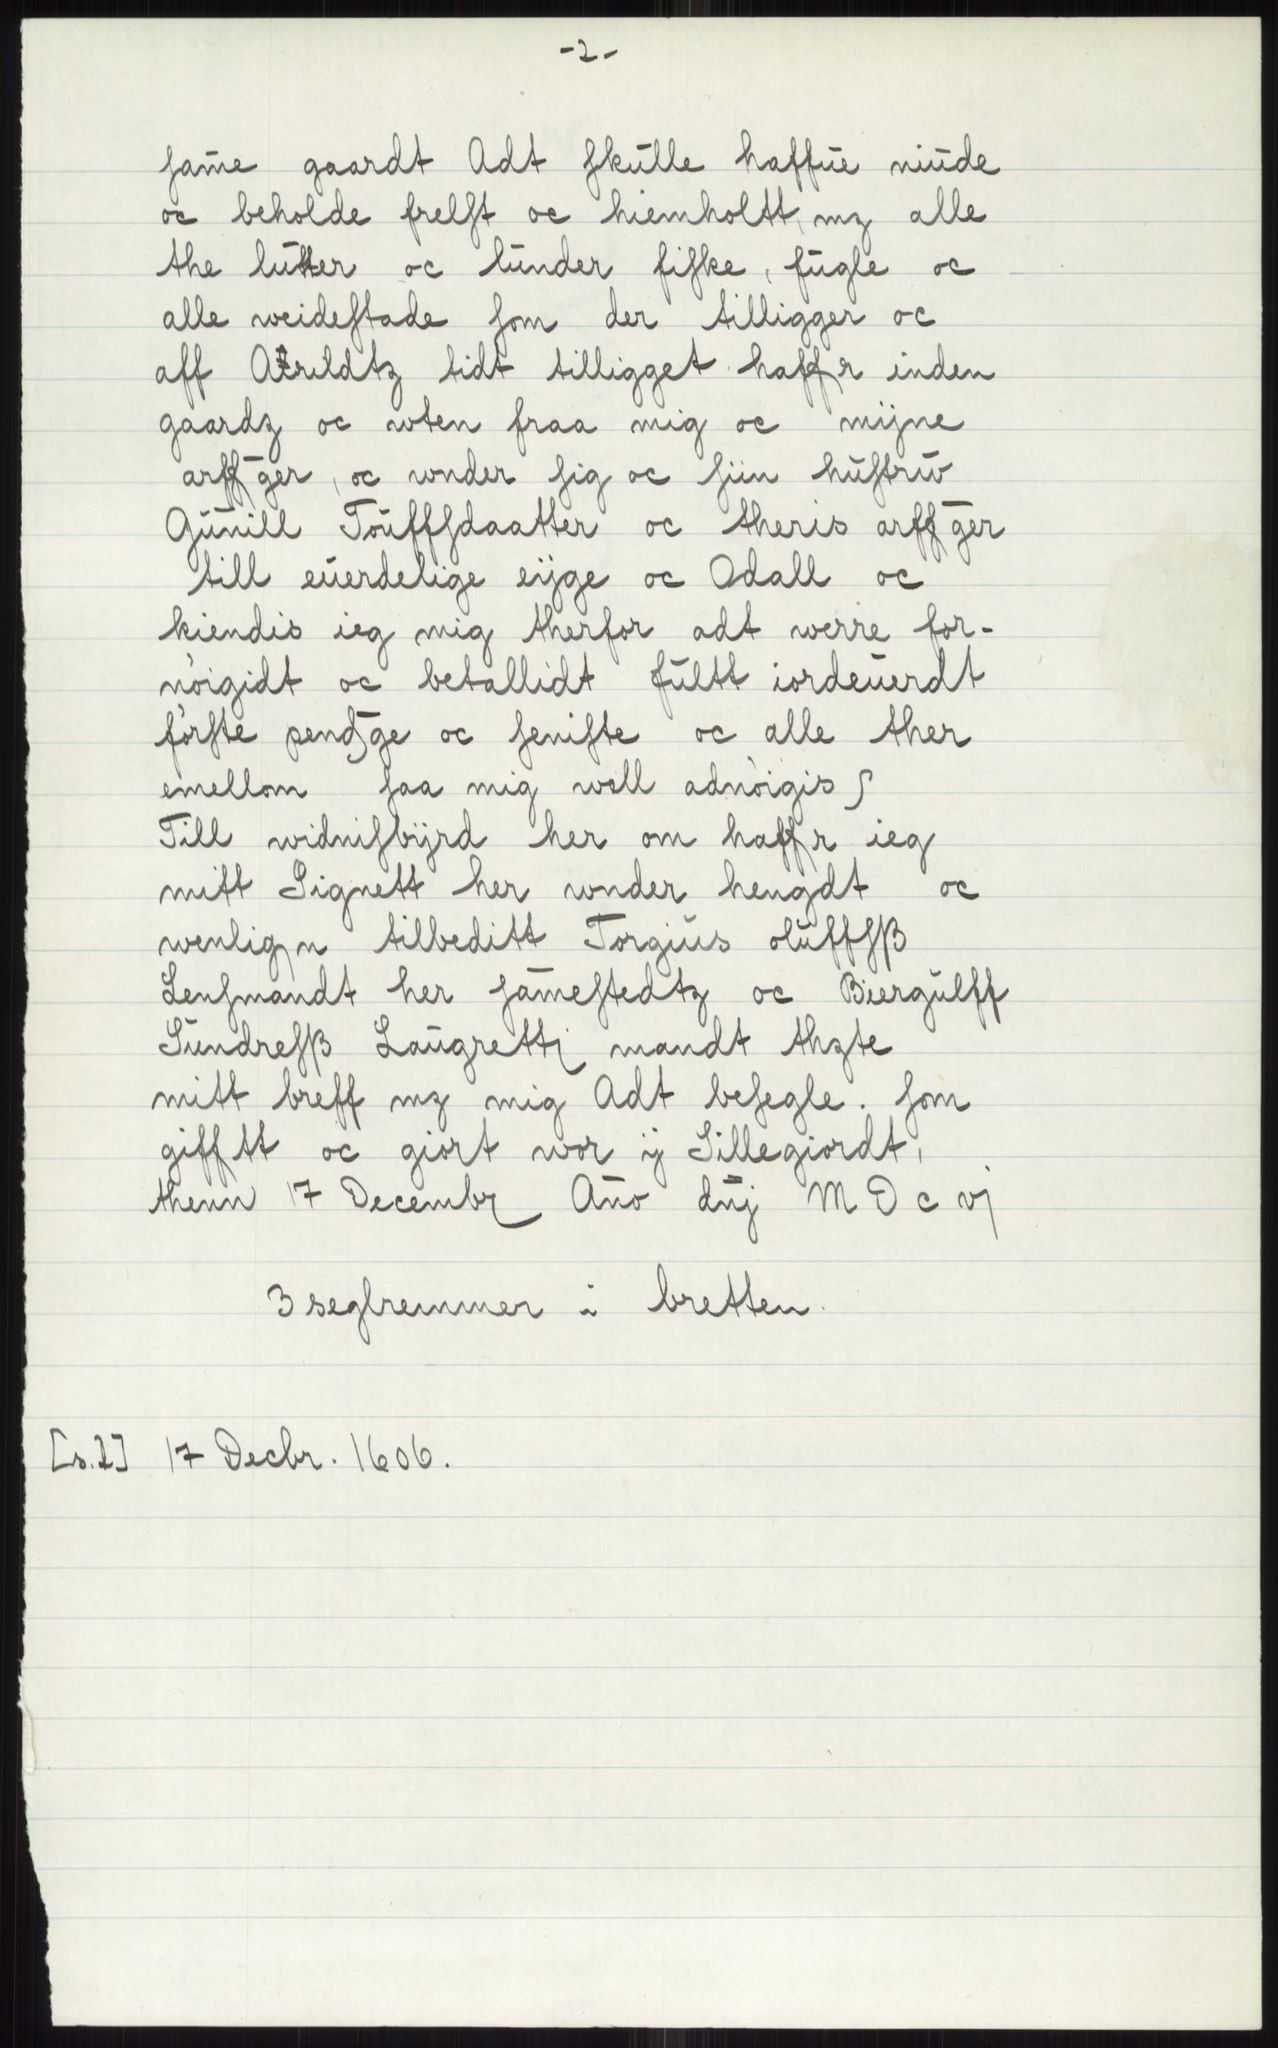 -2-
ſam̄e gaardt Adt ſkulle haffue niude
oc beholde frelſt oc hiemholtt, mz alle
the lutter oc lunder fiſke, fugle oc
alle weideſtade ſom der tilligger oc
aff Arildtz tidt tilligget haffr inden
gaardz oc wten fraa mig oc mijne
arff̄ger, oc wnder ſig oc ſiin huſtrw
Gun̄ill Touffſdaatter oc theris arff̄ger
till euerdelige eijge oc Odall oc
kiendis ieg mig therfor adt werre for-
nöigidt oc betallidt fultt iordeuerdt
förſte pend̄ge oc ſeniſte oc alle ther
emellom ſaa mig well adnöigis ſ
Till widniſbijrd her om haffr ieg
mitt Signett her wnder hengdt oc
wenlign tilbeditt Torgius oluffſß
Lenſmandt her ſam̄eſtedtz oc Biergulff
Sundreſß Laugrettj mandt thzte
mitt breff mz mig Adt beſegle. ſom
gifftt oc giort wor ij Sillegiordt,
thenn 17 Decembr An̄o dn̄j M D c vj
3 seglremmer i bretten.
[s.2] 17 Decbr. 1606.